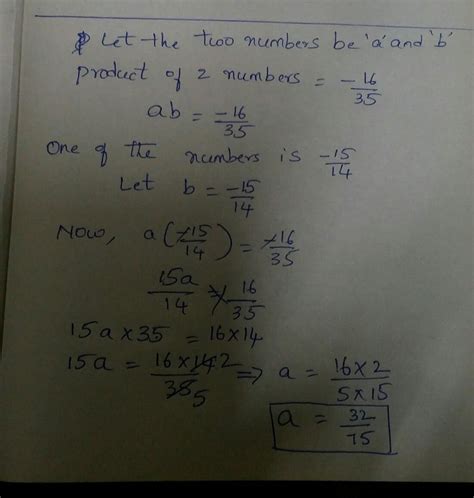 Let the two numbers be 'a' and 'b'
product of 2 numbers = -16/35
ab = -16/35
One of the numbers is -15/14
Let b = -15/14
Now, a(-15/14) = -16/35
15a/14 = 16/35
15a × 35 = 16 × 14
15a = 16×14 2/35 5 ⇒ a = 16×2/5×15
a = 32/75